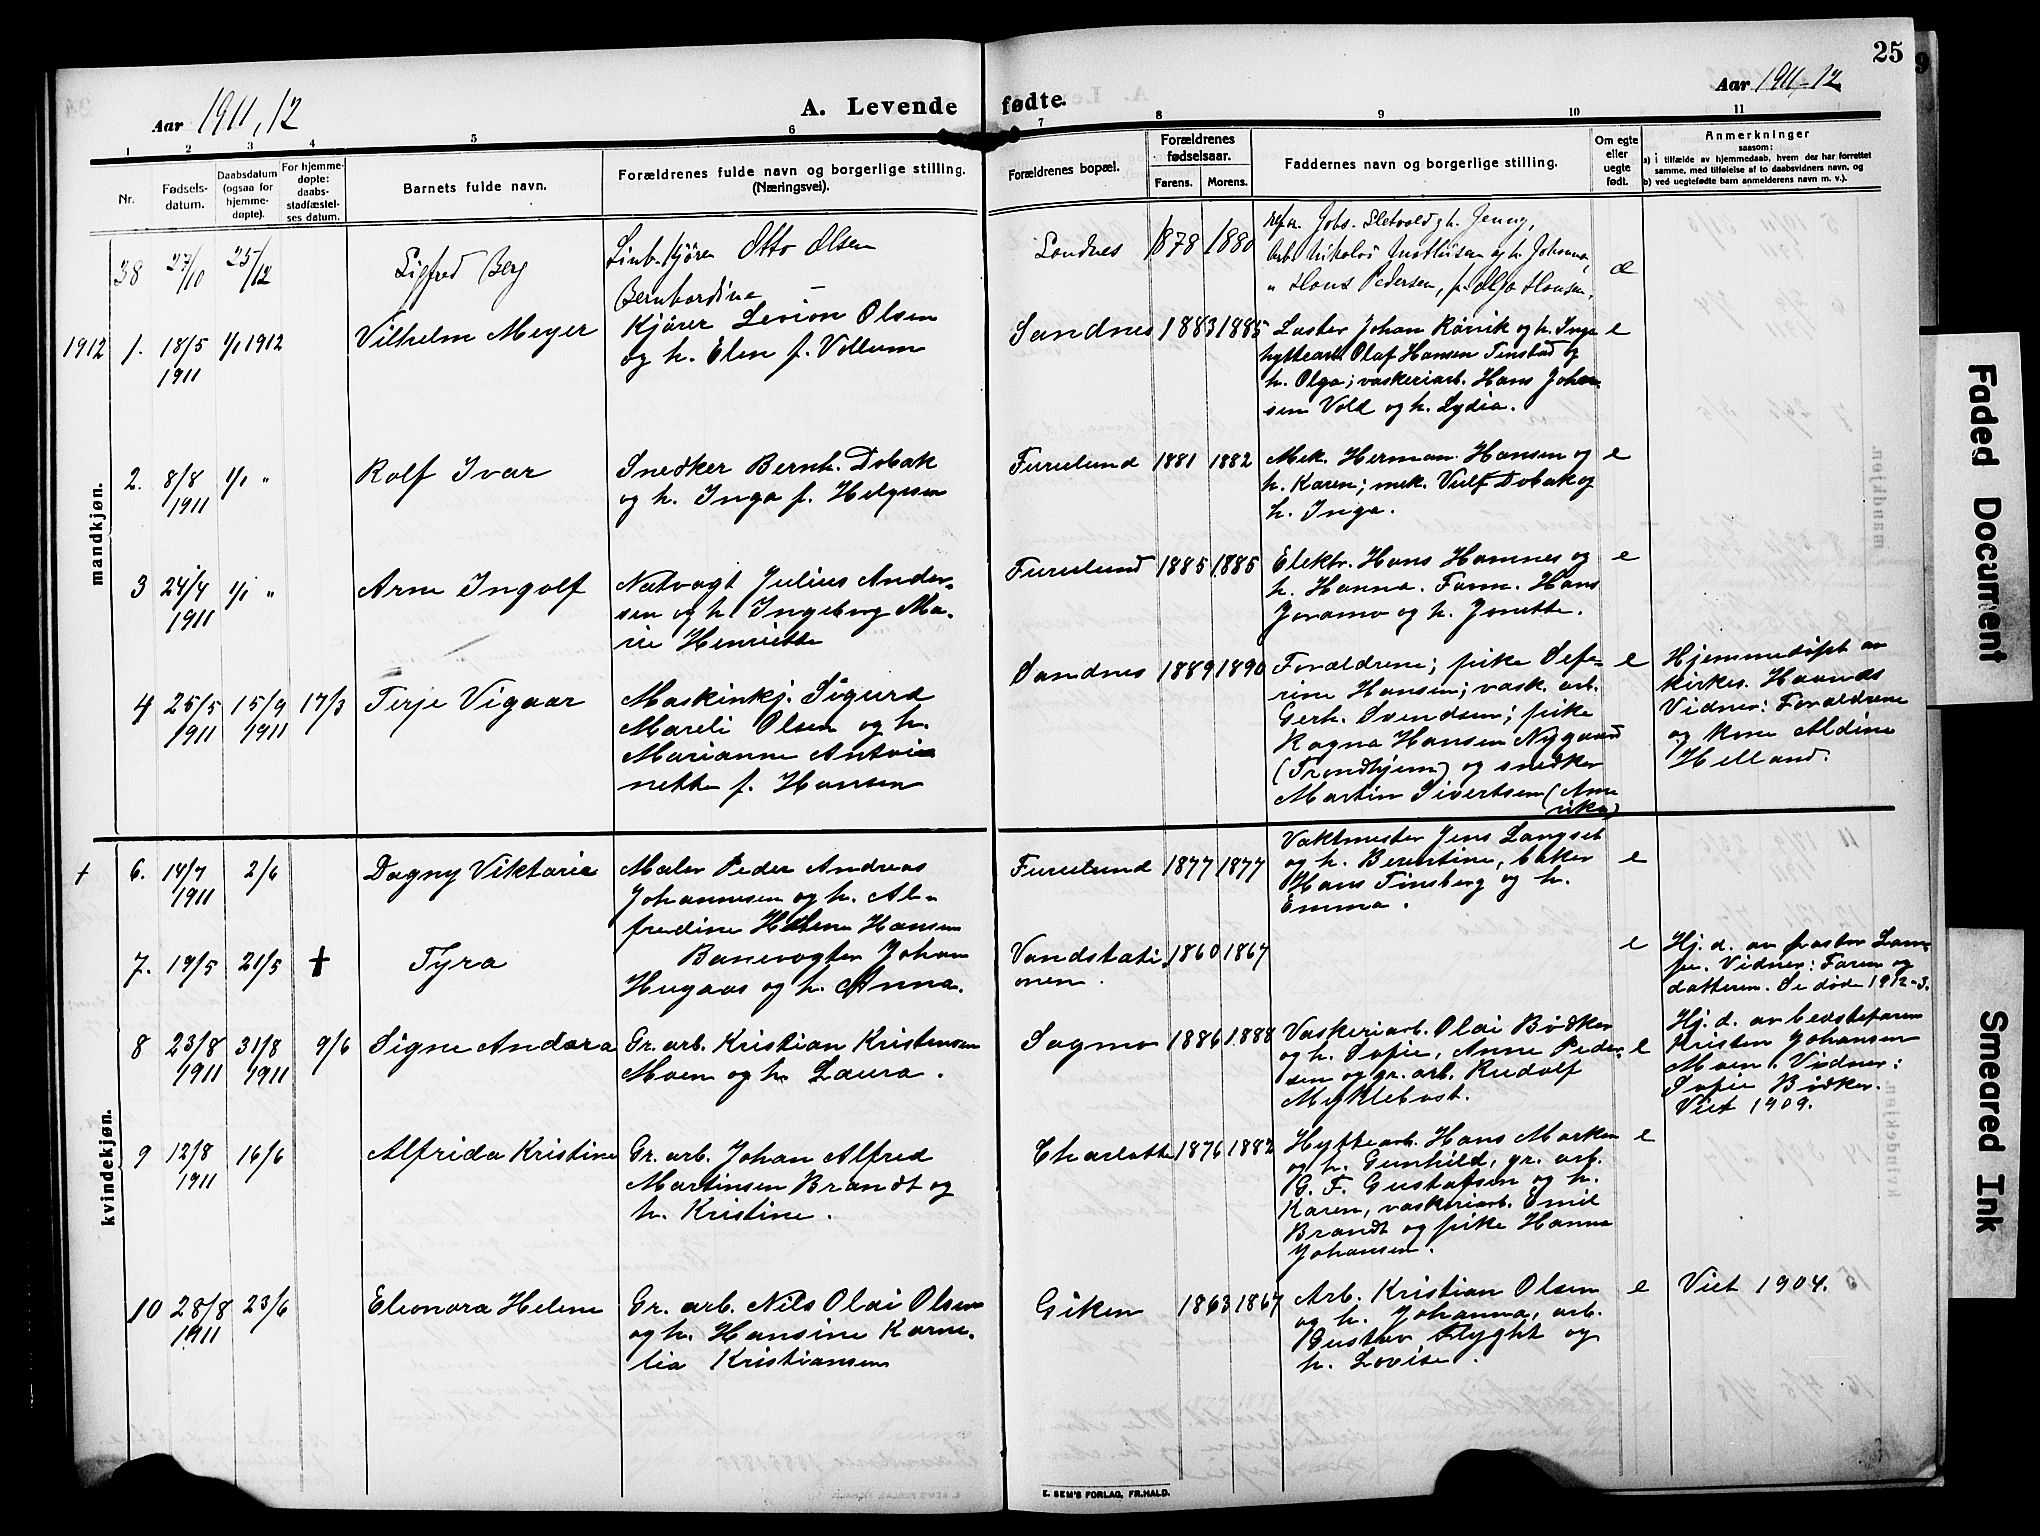 25
Aar 1911, 12
A. Levende fødte.
Aar 1911-12
1 2 3 4 5 6 7 8 9 10 11
Nr.
Fødsels-
datum.
Daabsdatum
(ogsaa for
hjemme-
døpte).
For hjemme-
døpte:
daabs-
stadfæstel-
ses datum.
Barnets fulde navn.
Forældrenes fulde navn og borgerlige stilling.
(Næringsvei).
Forældrenes bopæl.
Forældrenes
fødselsaar.
Farens. Morens.
Faddernes navn og borgerlige stilling.
Om egte
eller
uegte
født.
Anmerkninger
saasom:
a) i tilfælde av hjemmedaab, hvem der har forrettet
samme, med tilføielse af to daabsvidners navn, og
b) ved uegtefødte barn anmelderens navn m. v.).
mandkjøn.
38 27/10 25/12
Sigfred Berg
Otto Olsen
Bernhardine
Sandnes 1878 1880
Jenny,
Johanna,
" Hans Pedersen, Hansen,
æ
1912 1. 18/5 1911 1/1 1912
Vilhelm Meyer
Kjører Levion Olsen
og h. Elen f. Vollum
Sandnes 1883 1885
Laster Johan Rørvik og h. Inga
hyttearb. Olaf Hansen Tinstad og
h. Olga; vaskeriarb. Hans Johan-
sen Vold og h. Lydia.
e
2. 8/8 1911 1/1 "
Rolf Ivar
Snedker Bernh. Dobak
og h. Inga f. Helgesen
Furulund 1881 1882
Mek. Herman Hansen og
h. Karen; mek. Vulf Dobak og
h. Inga.
e
3 24/4 1911 1/1 "
Arne Ingolf
Natvagt Julius Ander-
sen og h. Ingeborg Ma-
rie Henriette
Furulund 1885 1885
Elektr. Hans Hamnes og
h. Hanna. Form. Hans
Joramo og h. Jonette.
e
4 25/5 1911 15/9 1911 17/3
Terje Vigaar
Maskinkj. Sigurd
Mareli Olsen og h.
Marianne Antoi-
nette f. Hansen
Sandnes 1889 1890
Forældrene; pike Sefe-
rine Hansen; vask. arb.
Gerh. Svendsen; pike
Ragna Hansen Nygaard
(Trondhjem) og snedker
Martin Sivertsen (Ame
rika)
e
Hjemmedøpt av
kirkes. Haands
Vidner: Forældrene
og kone Aldine
Helland.
kvindekjøn.
+ 6. 14/7 1911 2/6
Dagny Viktoria
Maler Peder Andreas
Johannesen og h. Al-
fredine Helene Hansen
Furulund 1877 1877
Vaktmester Jens Langset
og h. Berentine, baker
Hans Tinsberg og h.
Emma.
e
7. 19/5 21/5 +
Tyra
Banevogter Johan
Hugaas og h. Anna.
Vandstati-
onen. 1860 1867
e
Hj. d. av pastor Lam-
pe. Vidner: Faren og
datteren. Se døde 1912-3.
8 23/8 1911 31/8 1911 9/6
Signe Andora
Gr. arb. Kristian Kristensen
Moen og h. Laura.
Sagmo 1886 1888
Vaskeriarb. Olai Bødker
og h. Sofie, Anne Peder-
sen og gr. arb. Rudolf
Myklebost.
e
Hj. d. av bedstefaren
Kristen Johansen
Moen. Vidner:
Sofie Bødker.
Viet 1909.
9 12/8 1911 16/6
Alfrida Kristine
Gr. arb. Johan Alfred
Martinsen Brandt og
h. Kristine.
Charlotte 1876 1882
Hyttearb. Hans Marken
og h. Gunhild, gr. arb.
G. F. Gustafsen og h.
Karen, vaskeriarb. Emil
Brandt og pike Hanna
Johansen.
e
10 28/8 1911 23/6
Eleonora Helene
Gr. arb. Nils Olai Olsen
og h. Hansine Karne-
lia Kristiansen
Giken 1863 1867
Arb. Kristian Olsen
og h. Johanna, arb.
Gustav Flyght og
h. Lovise.
e
Viet 1904.
E. SEM'S FORLAG, FR.HALD.
Faded Document
Smeared Ink